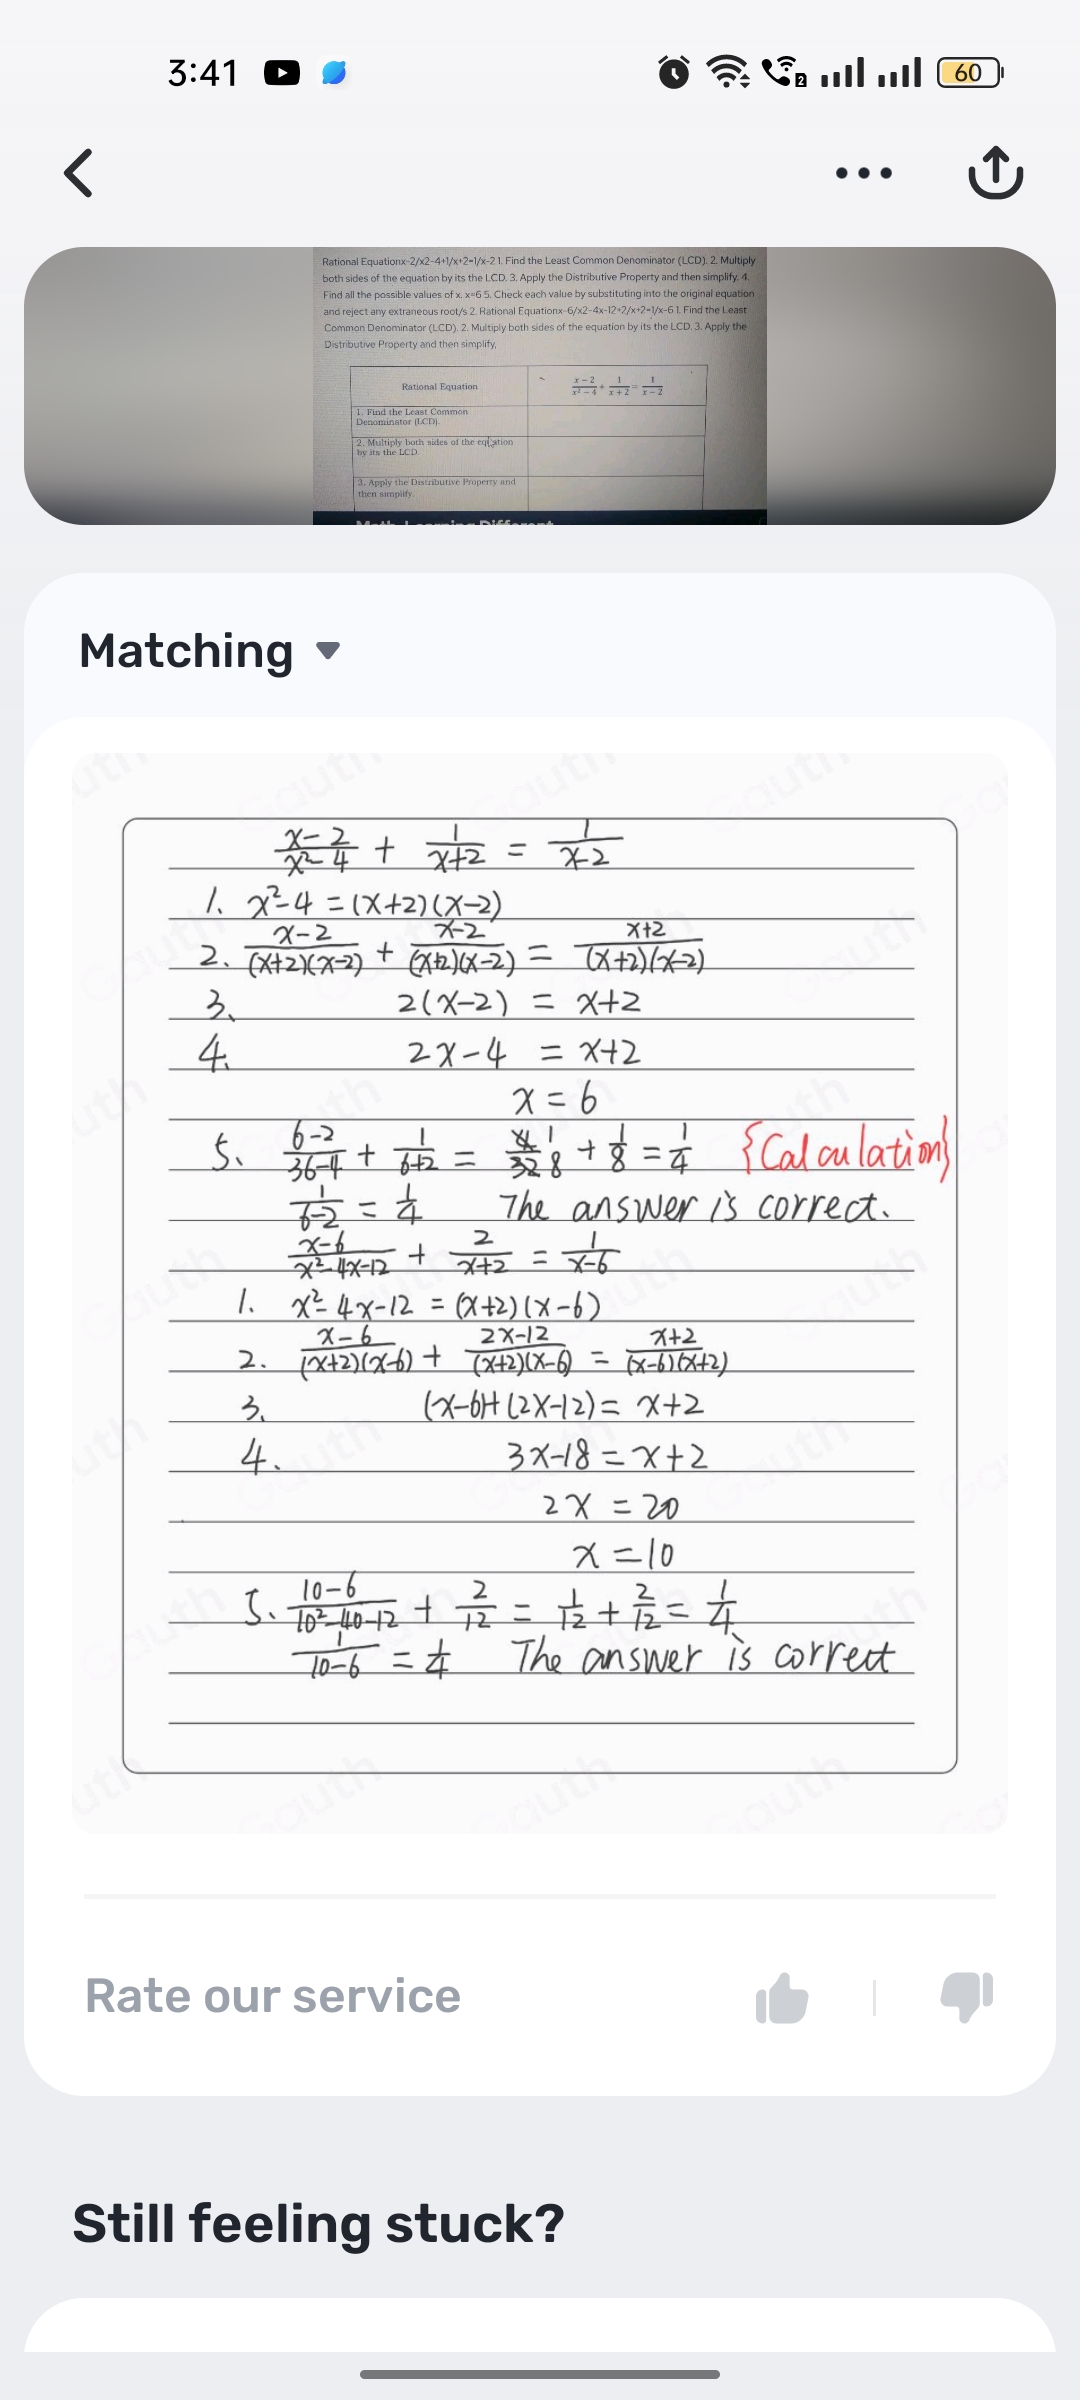 3:41
2
60
Rational Equationx-2/x2-4+1/x+2=1/x-2 1. Find the Least Common Denominator (LCD). 2. Multiply
both sides of the equation by its the LCD. 3. Apply the Distributive Property and then simplify. 4.
Find all the possible values of x. x=6 5. Check each value by substituting into the original equation
and reject any extraneous root/s 2. Rational Equationx-6/x2-4x-12+2/x+2=1/x-6 1. Find the Least
Common Denominator (LCD). 2. Multiply both sides of the equation by its the LCD. 3. Apply the
Distributive Property and then simplify,
Rational Equation (x-2)/(x²-4) + 1/(x+2) = 1/(x-2)
1. Find the Least Common
Denominator (LCD).
2. Multiply both sides of the equation
by its the LCD.
3. Apply the Distributive Property and
then simplify.
Matching
(x-2)/(x²-4) + 1/(x+2) = 1/(x-2)
1. x²-4 = (x+2)(x-2)
2. (x-2)/((x+2)(x-2)) + (x-2)/((x+2)(x-2)) = (x+2)/((x+2)(x-2))
3. 2(x-2) = x+2
4. 2x-4 = x+2
x = 6
5. (6-2)/(36-4) + 1/(6+2) = 4/32 1/8 + 1/8 = 1/4 {Calculation}
1/(6-2) = 1/4 The answer is correct.
(x-6)/(x²-4x-12) + 2/(x+2) = 1/(x-6)
1. x²-4x-12 = (x+2)(x-6)
2. (x-6)/((x+2)(x-6)) + (2x-12)/((x+2)(x-6)) = (x+2)/((x-6)(x+2))
3. (x-6)+(2x-12) = x+2
4. 3x-18 = x+2
2x = 20
x = 10
5. (10-6)/(10²-40-12) + 2/12 = 1/12 + 2/12 = 1/4
1/(10-6) = 1/4 The answer is correct
Gauth
Rate our service
Still feeling stuck?